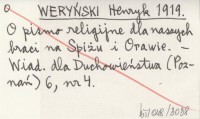 o WERYŃSKI Henryk 1919.
O pismo religijne dla naszych
braci na Spiżu i Orawie. –
Wiad. dla Duchowieństwa (Poz-
nań) 6, nr 4.